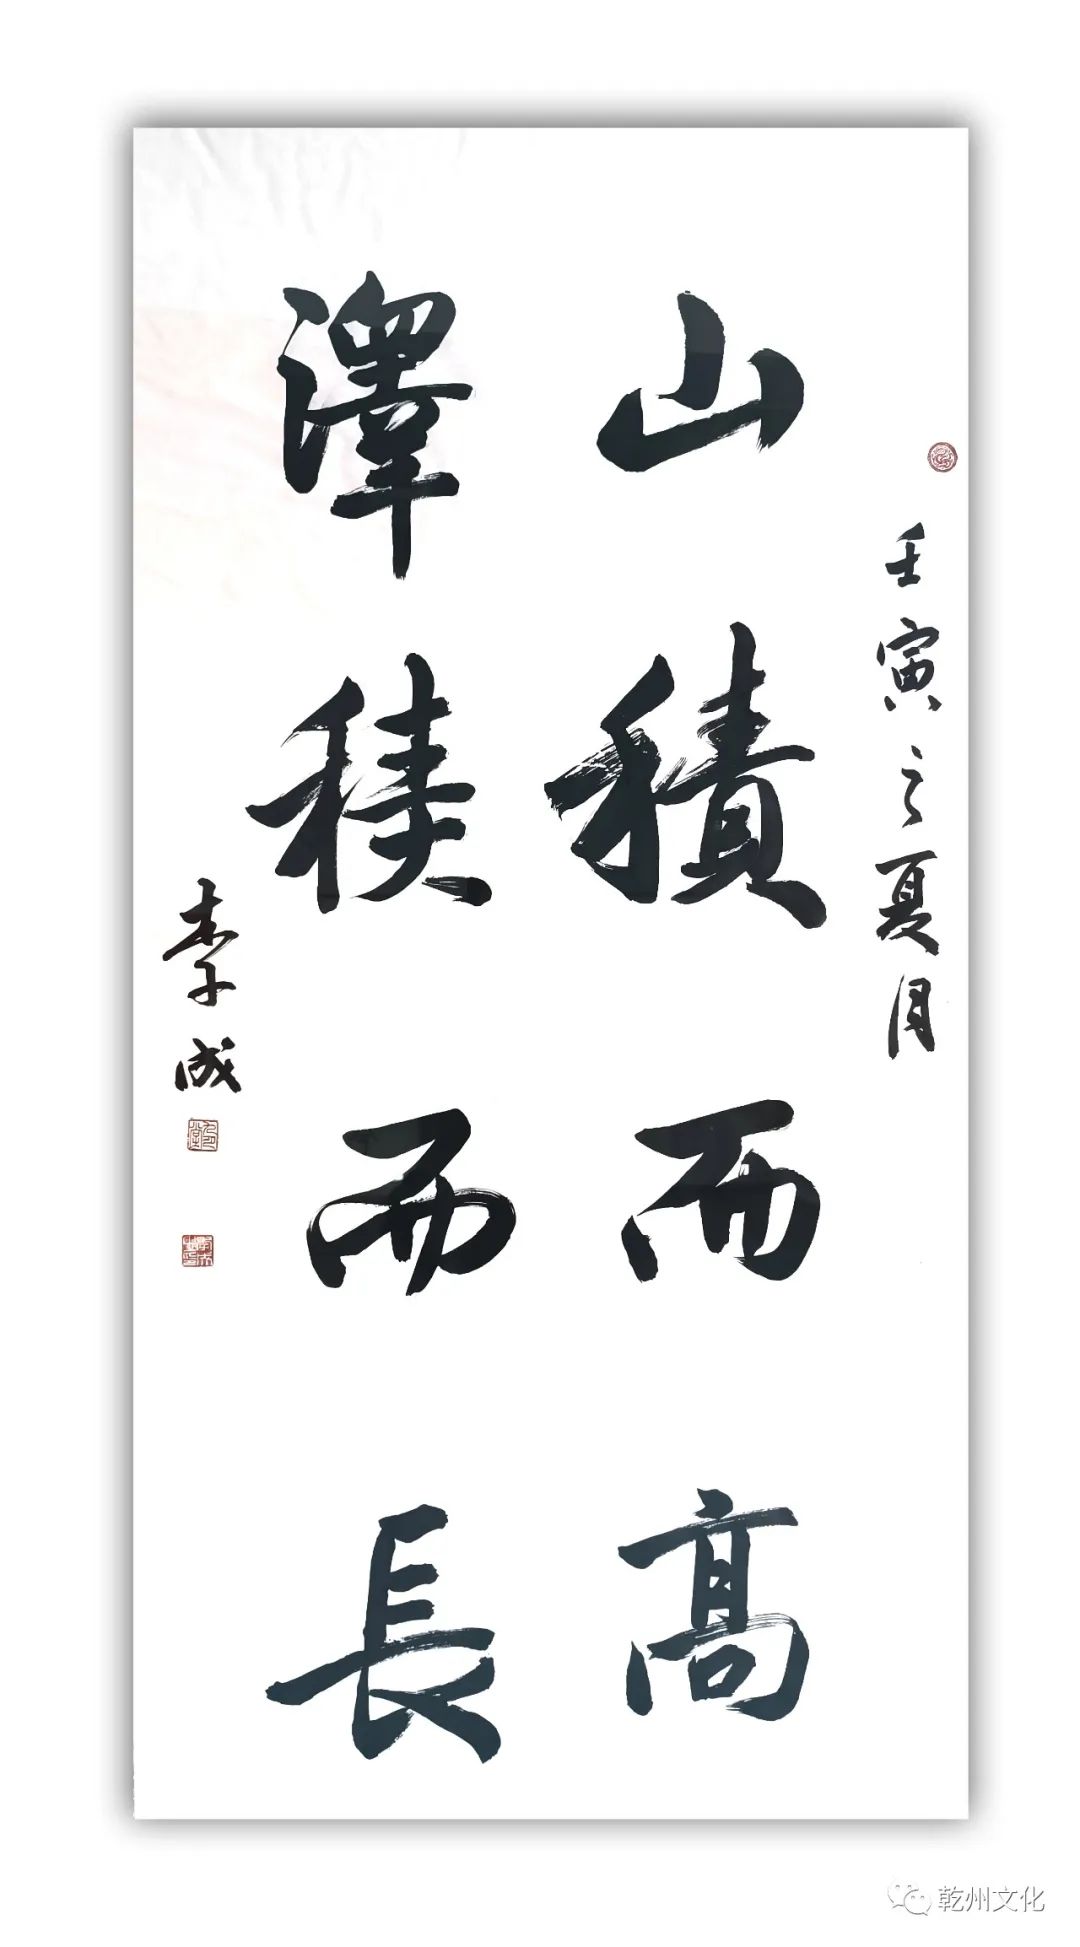 壬寅之夏月
山積而高
澤積而長
李成
乾州文化